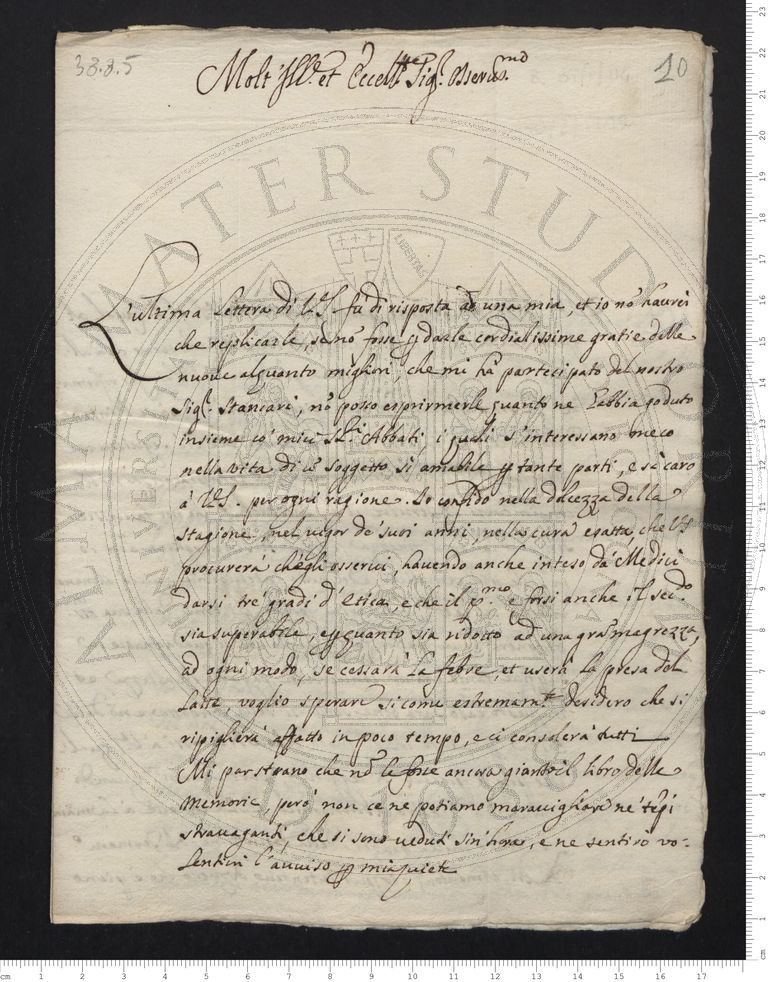 38.8.5
10
Molt' Ill.re et Eccell.mo Sig.r Osser.mo
L'ultima lettera di V.S. fù di risposta ad una mia, et io nõ haurei
che replicarle, se nõ fosse p darle cordialissime gratie delle
nuove alquanto migliori, che mi hà partecipato del nostro
Sig.r Stancari, nõ posso esprimerle quanto ne habbia goduto
insieme co' miei SS.ri Abbati, i quali s'interessano meco
nella vita di û soggetto sì amabile p tante parti, e sì caro
à V.S. per ogni ragione. Io confido nella dolcezza della
stagione, nel vigor de' suoi anni, nella cura esatta che V.S.
procurerà ch'egli osservi, havendo anche inteso da' Medici
darsi trè gradi d'Etica, e che il p.mo e forsi anche il sec.do
sia superabile, e p quanto sia ridotto ad una grã magrezza,
ad ogni modo, se cesserà la febre, et userà la presa del
latte, voglio sperare sicome estremam.te desidero che si
ripiglierà affatto in poco tempo, e ci consolerà tutti
Mi par strano che nõ le fosse ancora giunto il libro delle
Memorie, però non ce ne potiamo maravigliare ne' tẽpi
stravaganti, che si sono veduti sin'hora, e ne sentirò vo-
lentieri l'avviso p mia quiete
ALMA MATER STUDIORUM
LIBERTAS
cm 1 2 3 4 5 6 7 8 9 10 11 12 13 14 15 16 17
cm 1 2 3 4 5 6 7 8 9 10 11 12 13 14 15 16 17 18 19 20 21 22 23